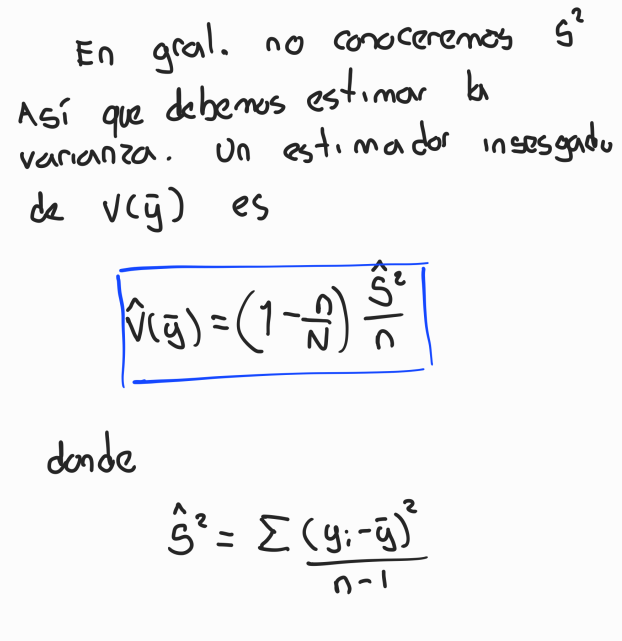 En gral. no conoceremos S²
Así que debemos estimar la
varianza. Un estimador insesgado
de V(ȳ) es
V̂(ȳ) = (1 - n/N) Ŝ²/n
donde
Ŝ² = Σ (yᵢ - ȳ)² / n-1